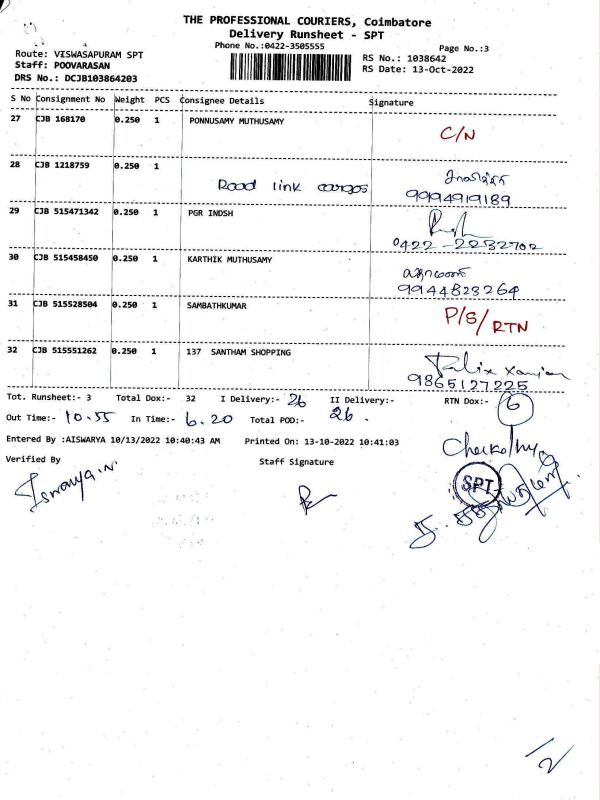 THE PROFESSIONAL COURIERS, Coimbatore
Delivery Runsheet - SPT
Phone No.:0422-3505555
Page No.:3
Route: VISWASAPURAM SPT
Staff: POOVARASAN
DRS No.: DCJB103864203
RS No.: 1038642
RS Date: 13-Oct-2022
S No Consignment No Weight PCS Consignee Details Signature
27 CJB 168170 0.250 1 PONNUSAMY MUTHUSAMY C/N
28 CJB 1218759 0.250 1 Road link
9994919189
29 CJB 515471342 0.250 1 PGR INDSH
0422-2232702
30 CJB 515458450 0.250 1 KARTHIK MUTHUSAMY
9944823264
31 CJB 515528504 0.250 1 SAMBATHKUMAR P/S/RTN
32 CJB 515551262 0.250 1 137 SANTHAM SHOPPING
9865127225
Tot. Runsheet:- 3 Total Dox:- 32 I Delivery:- 26 II Delivery:- RTN Dox:- 6
Out Time:- 10.55 In Time:- 6.20 Total POD:- 26.
Entered By :AISWARYA 10/13/2022 10:40:43 AM Printed On: 13-10-2022 10:41:03
Verified By Staff Signature
SPT